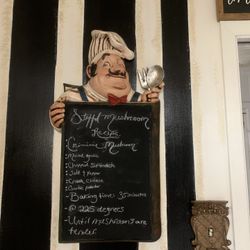 Stuffed mushroom
Recipe
- Criminis Mushroom
- Minced garlic
- Chopped Spinach
- Salt & Pepper
- Cream cheese
- Garlic powder
- Baking time 35 minutes
- @ 225 degrees
- Until mushrooms are
tender